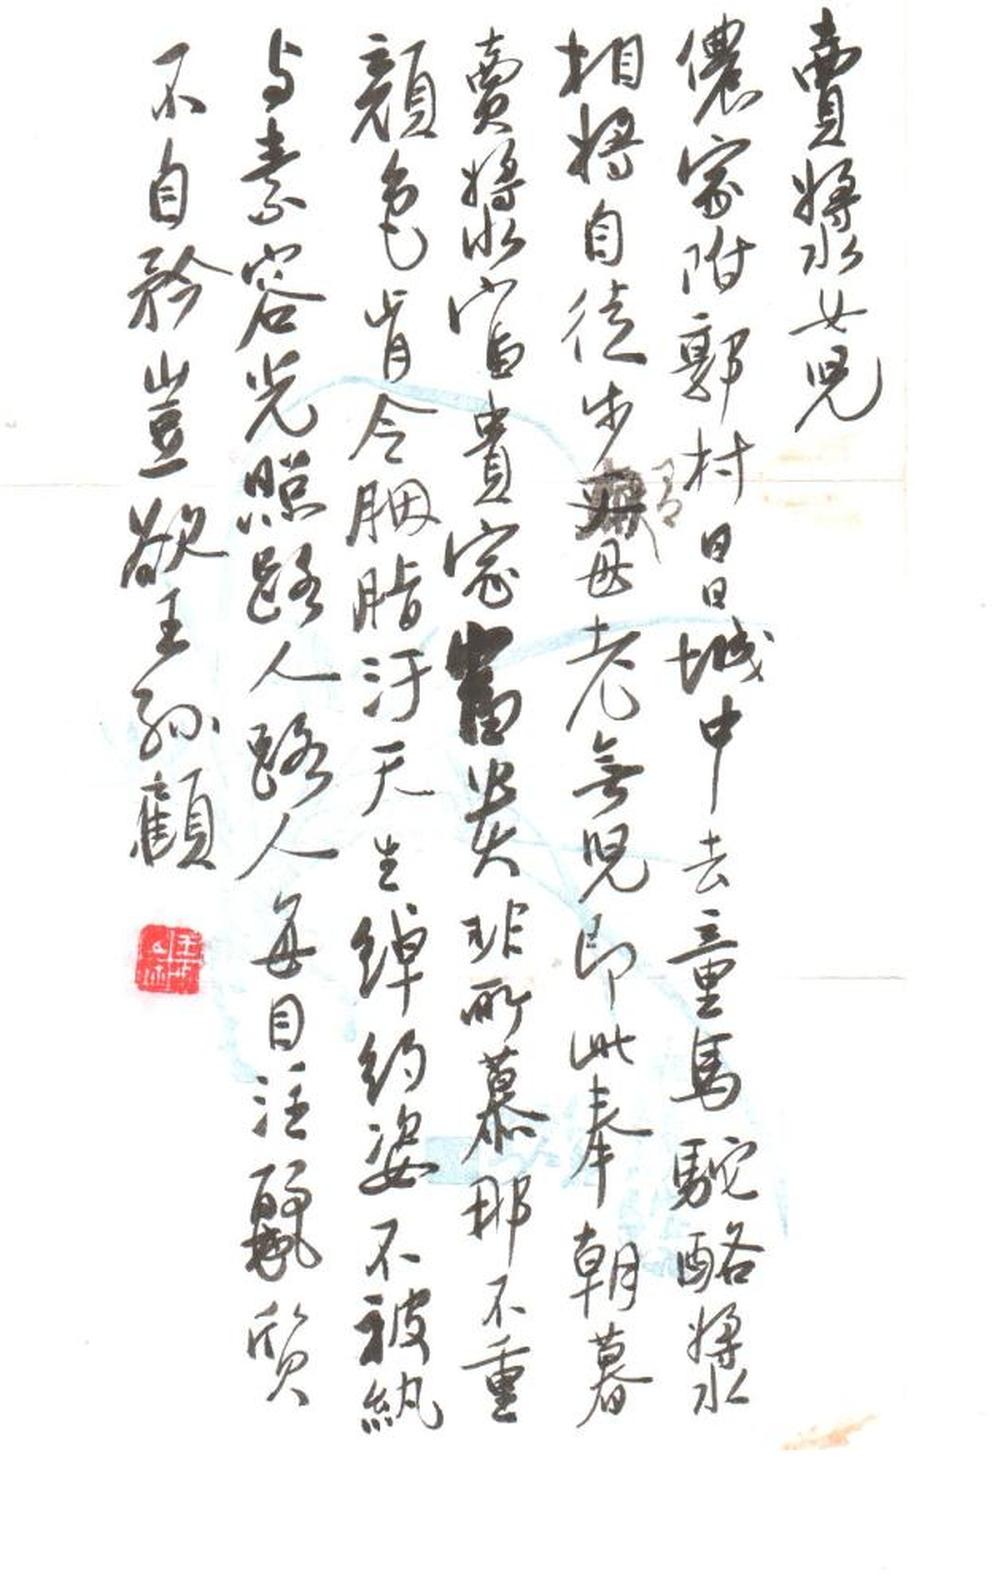 賣漿女兒
儂家附郭村日日城中去童馬駝酪漿
相將自徒步母老無兒即此奉朝暮
賣漿富貴家炎非所慕那不重
顏色肯令胭脂汙天生綽約姿不被紈
与素容光照路人路人每目注麗質
不自矜豈欲王孫顧